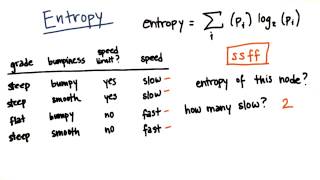 Entropy
entropy = Σ (Pᵢ) log₂ (Pᵢ)
i
ssff
grade bumpiness speed limit? speed
steep bumpy yes slow –
steep smooth yes slow –
flat bumpy no fast –
steep smooth no fast –
entropy of this node?
how many slow? 2